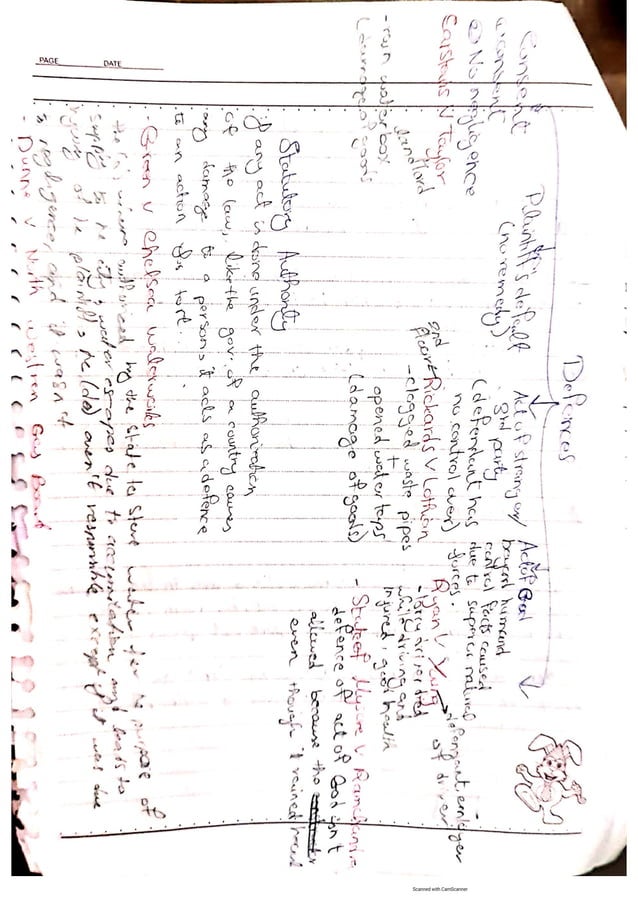 PAGE DATE
Defences
Consent
① consent
② No negligence
Carstairs V Taylor
landlord
- rain water box
(damage of goods)
Plaintiff's default
(no remedy)
Act of stranger/
3rd party
(defendant has
no control over)
Rickards V Lothian
- clogged waste pipes
+
opened water taps
(damage of goods)
Act of God
beyond human
control facts caused
due to supernatural
forces.
Ryan V Young
→ defendant, employer
of driver
- lorry driver died
while driving and
injured, good health
- State of Mysore V Ramchandra
defence of act of God isn't
allowed because the
even though it rained hard
Statutory Authority
if any act is done under the authorization
of the law, like the gov. of a country causes
any damage to a person, it acts as a defence
to an action of tort.
- Green v Chelsea waterworks
the were authorized by the state to store water for the purpose of
supply to the city, water escapes due to accumulation and leads to
injury of the plaintiff, the (de) aren't responsible except if it was due
to negligence, and it wasn't
- Dunne v North Western Gas Board
Scanned with CamScanner